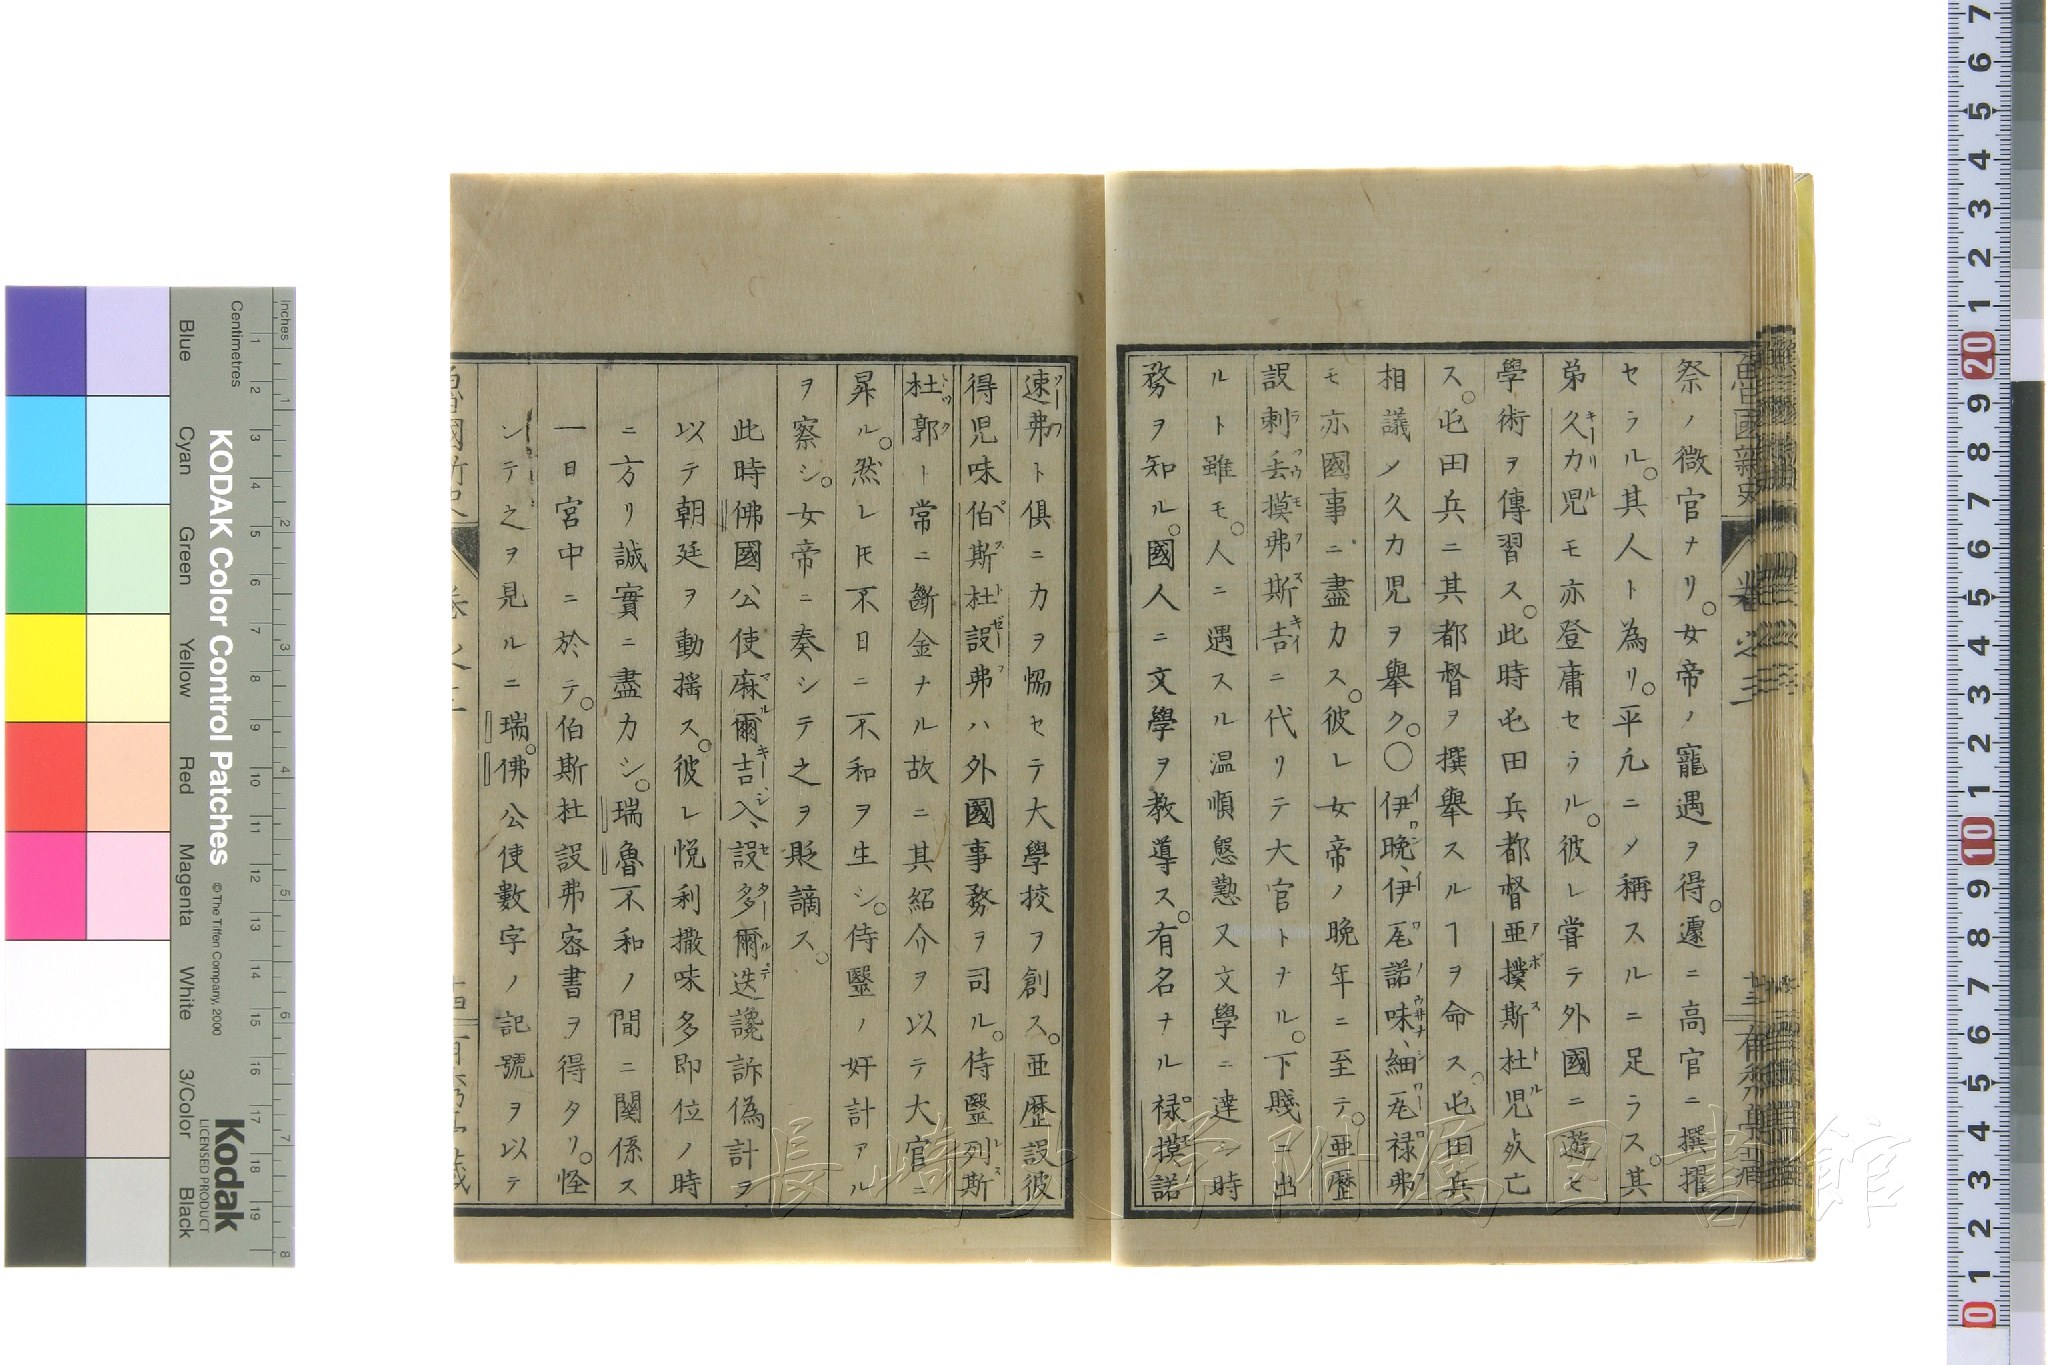 祭ノ微官ナリ。女帝ノ寵遇ヲ得。遽ニ高官ニ撰擢
セラル。其人ト為リ。平凡ニメ稱スルニ足ラス。其
弟久力児モ亦登庸セラル。彼レ甞テ外國ニ遊ヒ
學術ヲ傳習ス。此時屯田兵都督亜撲斯杜児歿亡
ス。屯田兵ニ其都督ヲ撰舉スルヿヲ命ス。屯田兵
相議メ久力児ヲ舉ク。○伊晩、伊尾諾味、細尾禄弗
モ亦國事ニ盡力ス。彼レ女帝ノ晩年ニ至テ。亜歴
設剌丢摸弗斯吉ニ代リテ大官トナル。下賤ニ出
ルト雖モ。人ニ遇スル温順慇懃又文學ニ達シ時
務ヲ知ル。國人ニ文學ヲ教導ス。有名ナル禄摸諾
速弗ト倶ニカヲ恊セテ大學校ヲ創ス。亜歴設彼
得児味伯斯杜設弗ハ外國事務ヲ司ル。侍醫列斯
杜郭ト常ニ斷金ナル故ニ其紹介ヲ以テ大官ニ
昇ル。然レ𪜈不日ニ不和ヲ生シ。侍醫ノ奸計アル
ヲ察シ。女帝ニ奏シテ之ヲ貶謫ス。
此時佛國公使麻爾吉入、設多爾迭讒訴偽計ヲ
以テ朝廷ヲ動揺ス。彼レ悦利撒味多即位ノ時
ニ方リ誠實ニ盡力シ。瑞魯不和ノ間ニ關係ス
一日宮中ニ於テ。伯斯杜設弗密書ヲ得タリ。怪
ンテ之ヲ見ルニ瑞。佛公使數字ノ記號ヲ以テ
魯國新史
卷之三
長崎大学附属図書館
KODAK Color Control Patches
© The Tiffen Company, 2000
Kodak
LICENSED PRODUCT
Centimetres
Inches
Blue
Cyan
Green
Yellow
Red
Magenta
White
3/Color
Black